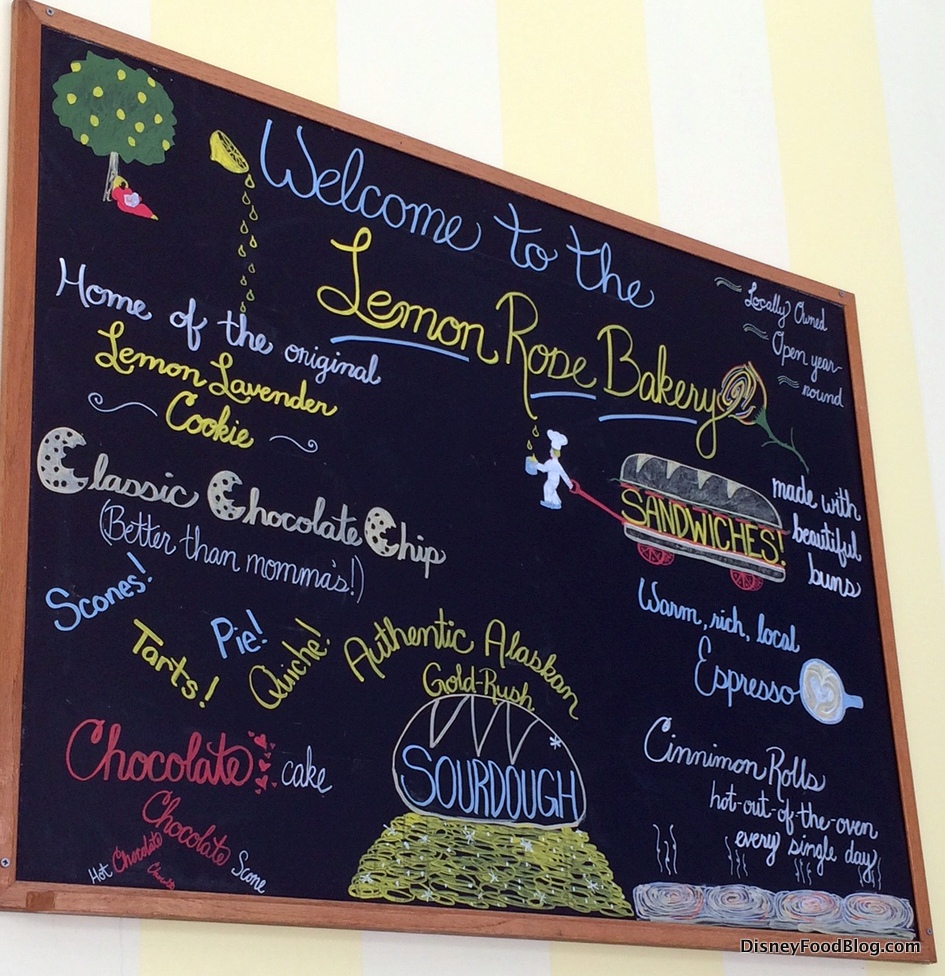 Welcome to the
Lemon Rose Bakery
Locally Owned
Open year-
round
Home of the original
Lemon Lavender
Cookie
Classic Chocolate Chip
(Better than momma's!)
SANDWICHES!
made with
beautiful
buns
Scones!
Tarts!
Pie!
Quiche!
Authentic Alaskan
Gold-Rush
SOURDOUGH
Warm, rich, local
Espresso
Chocolate cake
Chocolate
Hot Chocolate Chocolate Scone
Cinnimon Rolls
hot-out-of-the-oven
every single day
DisneyFoodBlog.com